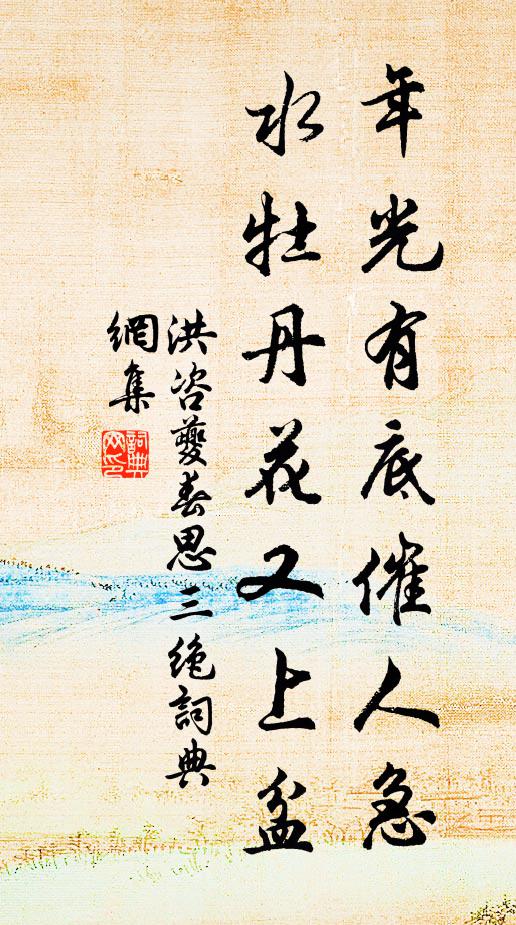 年光有底催人急
水牡丹花又上盆
洪咨夔春思三絶詞典
網集
詞典
网印